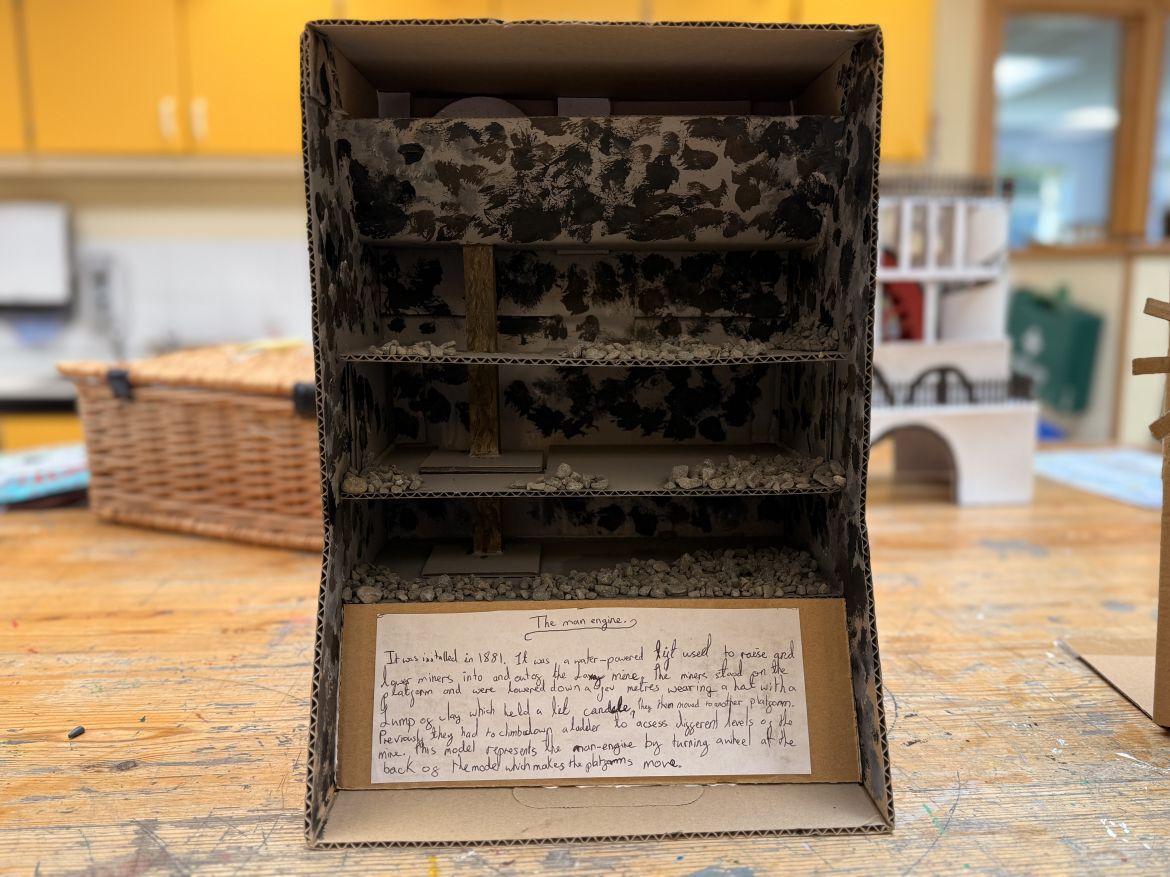 The man engine.
It was installed in 1881. It was a water-powered lift used to raise and
lower miners into and outog the Laxey mine. The miners stood on the
platform and were lowered down a few metres wearing a hat with a
Lump of clay which held a lit candle, they then moved to another platform.
Previously they had to climbdown a ladder to acsess different levels of the
mine. This model represents the man-engine by turning a wheel at the
back of the model which makes the platforms move.